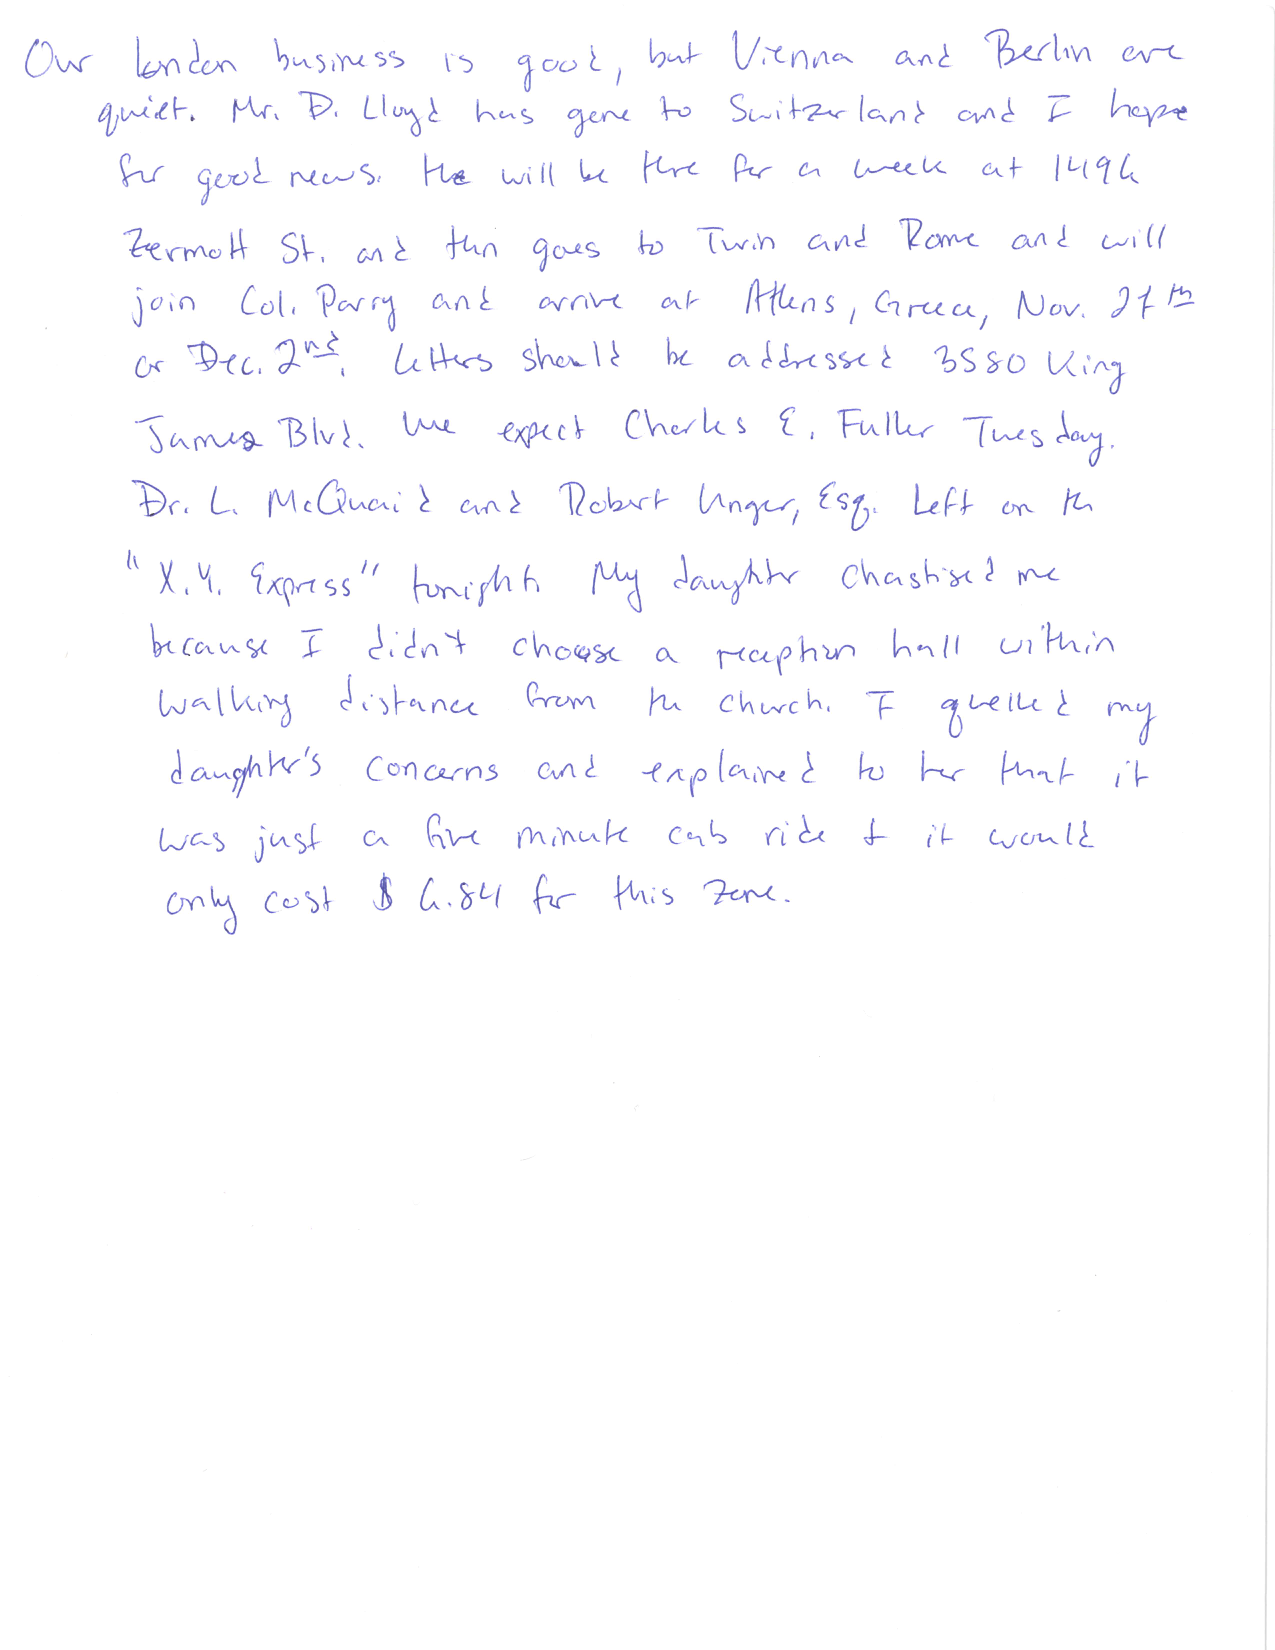 Our London business is good, but Vienna and Berlin are
quiet. Mr. D. Lloyd has gone to Switzerland and I hope
for good news. He will be there for a week at 1496
Zermott St. and then goes to Turin and Rome and will
join Col. Parry and arrive at Athens, Greece, Nov. 27th
or Dec. 2nd. Letters should be addressed 3580 King
James Blvd. We expect Charles E. Fuller Tuesday.
Dr. L. McQuaid and Robert Unger, Esq. Left on the
"X.Y. Express" tonight. My daughter chastised me
because I didn't choose a reception hall within
walking distance from the church. I quelled my
daughter's concerns and explained to her that it
was just a five minute cab ride & it would
only cost $6.84 for this zone.